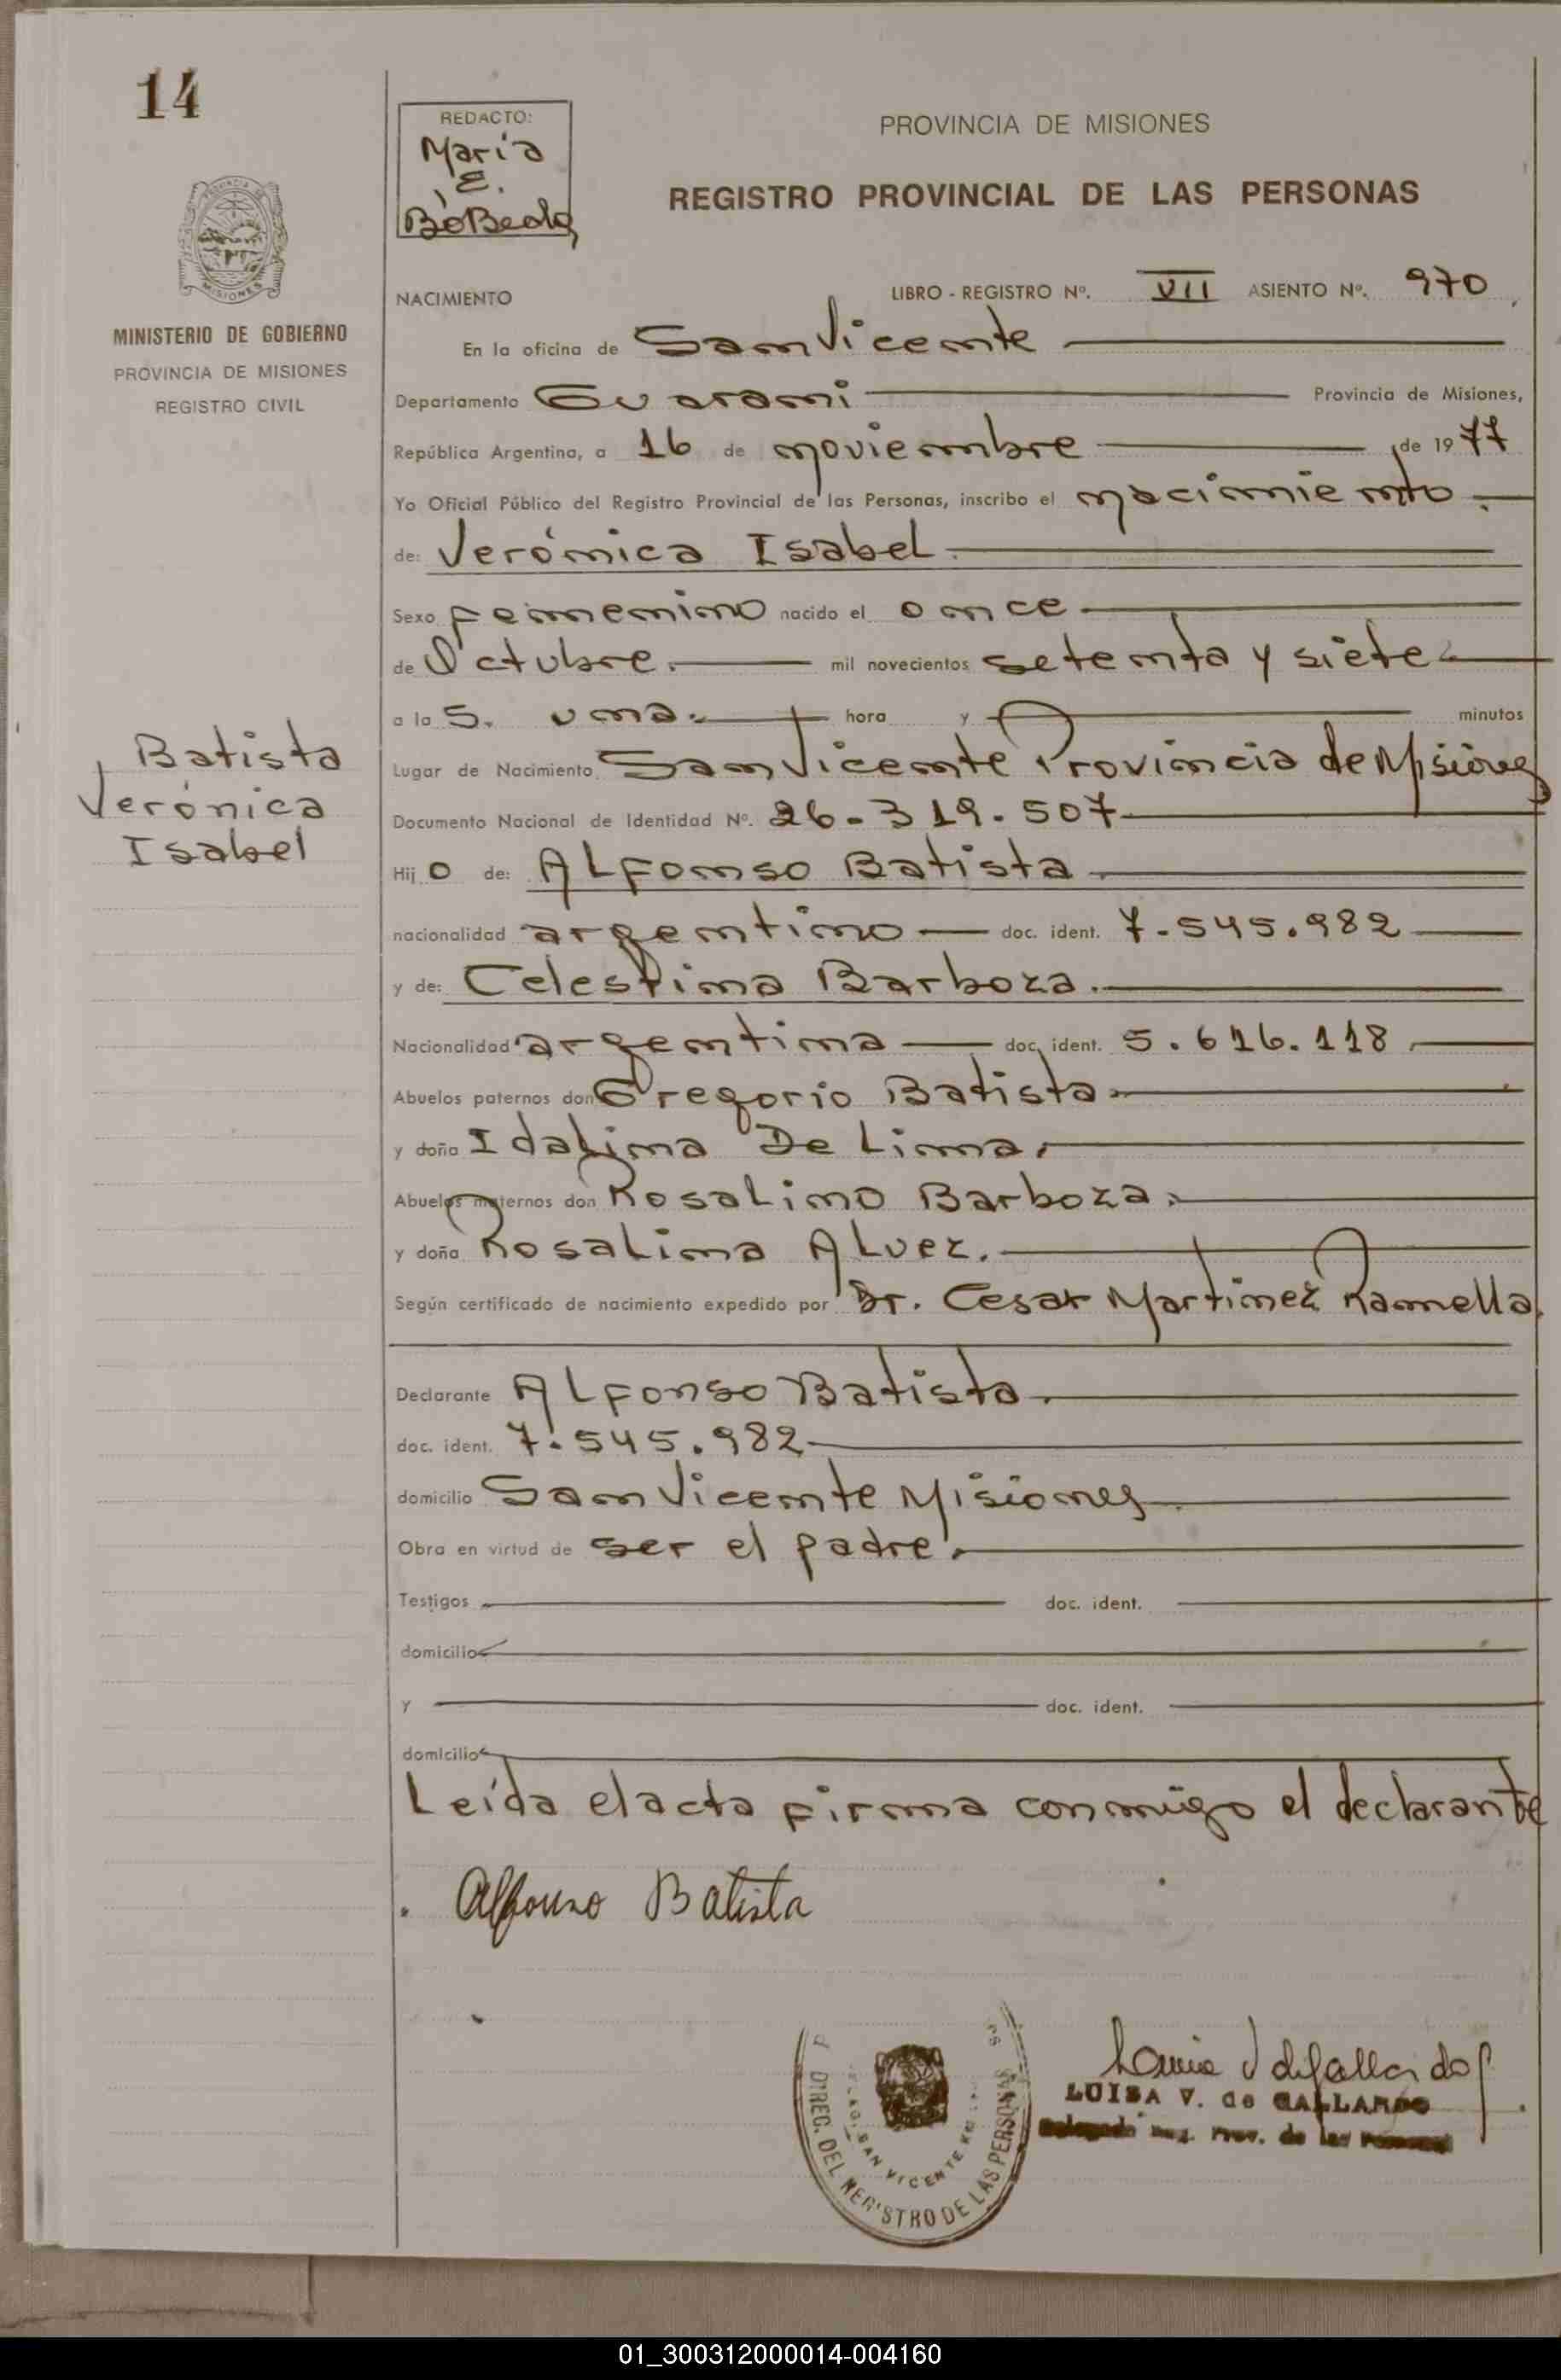 14
REDACTO:
Maria
E.
BóBeda
PROVINCIA DE MISIONES
REGISTRO PROVINCIAL DE LAS PERSONAS
PROVINCIA DE
MISIONES
MINISTERIO DE GOBIERNO
PROVINCIA DE MISIONES
REGISTRO CIVIL
NACIMIENTO
LIBRO - REGISTRO Nº. VII ASIENTO Nº. 970
En la oficina de San Vicente
Departamento Guarani Provincia de Misiones,
República Argentina, a 16 de noviembre de 1977
Yo Oficial Público del Registro Provincial de las Personas, inscribo el nacimiento.
de: Verónica Isabel.
Sexo femenino nacido el once
de Octubre. mil novecientos setenta y siete
a la S. una. hora y minutos
Lugar de Nacimiento San Vicente Provincia de Misiones
Documento Nacional de Identidad Nº. 26-319.507
Batista
Verónica
Isabel
Hijo de: Alfonso Batista.
nacionalidad argentino doc. ident. 7.545.982
y de: Celestina Barboza.
Nacionalidad argentina doc. ident. 5.616.118
Abuelos paternos don Gregorio Batista.
y doña Idalina De Lima.
Abuelos maternos don Rosalino Barboza.
y doña Rosalina Alvez.
Según certificado de nacimiento expedido por Dr. Cesar Martinez Ramella.
Declarante Alfonso Batista.
doc. ident. 7.545.982
domicilio San Vicente Misiones
Obra en virtud de ser el padre.
Testigos doc. ident.
domicilio
y doc. ident.
domicilio
Leída el acta firma conmigo el declarante
Alfonso Batista
DIREC. DEL REGISTRO DE LAS PERSONAS
SAN VICENTE
Luisa V de Gallardo
LUISA V. de GALLARDO
Delegado Reg. Prov. de las Personas
01_300312000014-004160